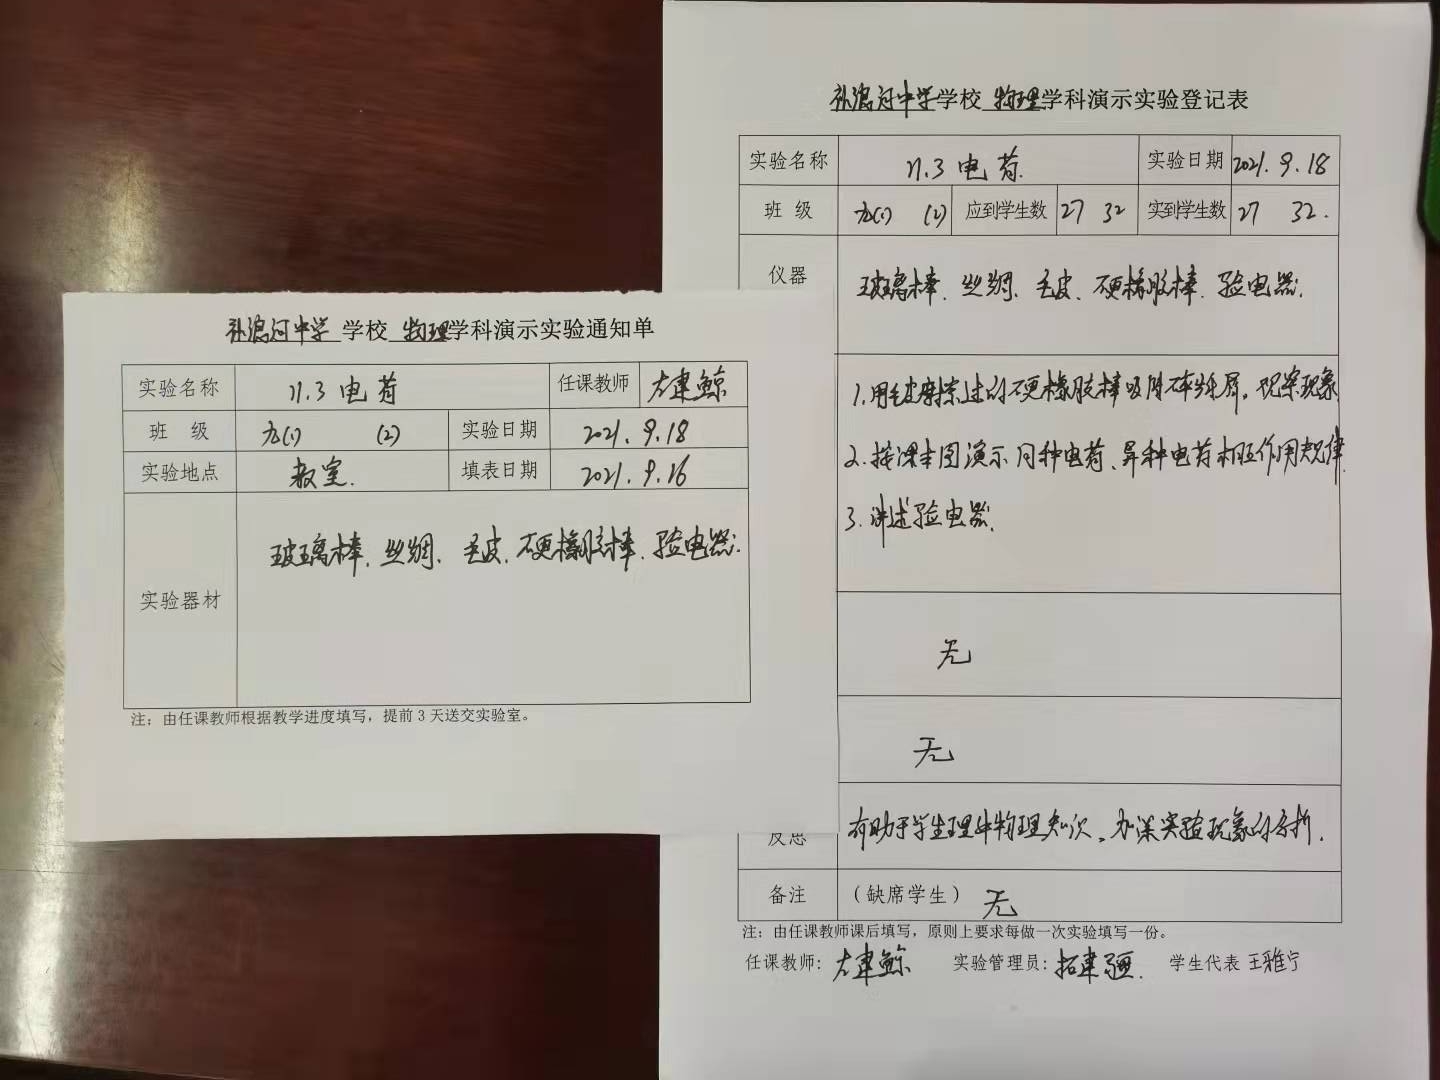 补浪河中学学校 物理学科演示实验通知单
实验名称 11.3 电荷 任课教师
班 级 九(1) (2) 实验日期 2021.9.18
实验地点 教室. 填表日期 2021.9.16
实验器材 玻璃棒、丝绸、毛皮、硬橡胶棒、验电器.
注：由任课教师根据教学进度填写，提前3天送交实验室。
补浪河中学学校 物理学科演示实验登记表
实验名称 11.3 电荷 实验日期 2021.9.18
班 级 九(1) (2) 应到学生数 27 32 实到学生数 27 32.
仪器 玻璃棒、丝绸、毛皮、硬橡胶棒、验电器.
1.用毛皮摩擦过的硬橡胶棒吸引碎纸屑，观察现象
2.按课本图演示同种电荷、异种电荷相互作用规律
3.讲述验电器.
无
无
反思 有助于学生理解物理知识，加深实验现象的分析.
备注 （缺席学生） 无
注：由任课教师课后填写，原则上要求每做一次实验填写一份。
任课教师： 实验管理员： 学生代表 王雅宁